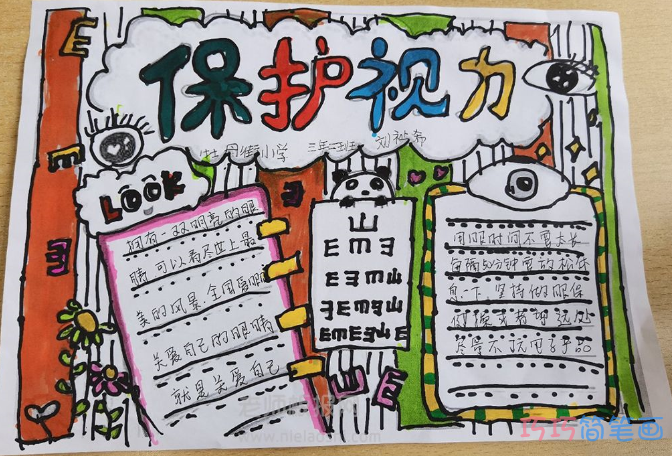 保护视力
牡丹街小学 三年二班 刘
LOOK
拥有一双明亮的眼
睛可以看尽世上最
美的风景.全国爱眼
关爱自己的眼睛
就是关爱自己
山
E m ヨ
用眼时间不要太长
每隔50分钟要放松休
息一下.坚持做眼保
尽量不玩电子产品
www.nielao
巧巧简笔画